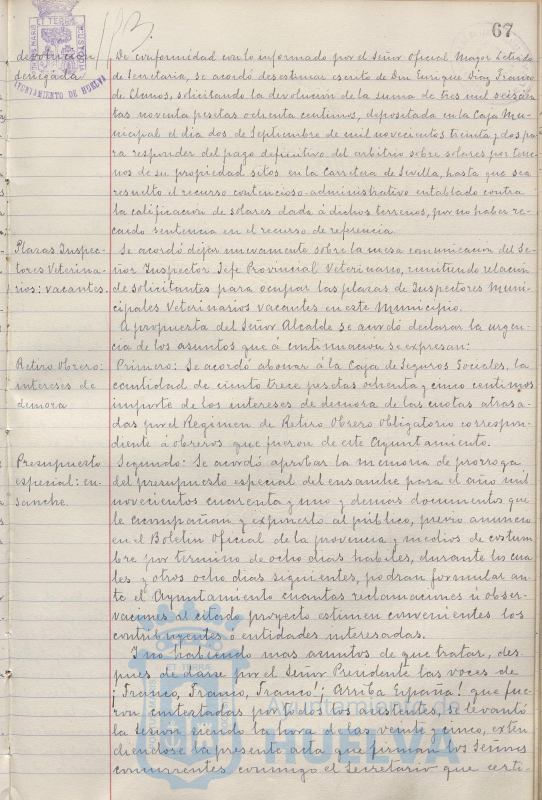 67
113.
devolución denegada
AYUNTAMIENTO DE HUELVA
De conformidad con lo informado por el Señor Oficial Mayor Letrado
de Secretaria, se acordó desestimar escrito de Don Enrique Diaz Franco
de Llanos, solicitando la devolucion de la suma de tres mil seiscien
tas noventa pesetas ochenta centimos, depositada en la Caja Mu-
nicipal el dia dos de Septiembre de mil novecientos treinta y dos pa
ra responder del pago definitivo del arbitrio sobre solares por terre
nos de su propiedad sitos en la Carretera de Sevilla, hasta que sea
resuelto el recurso contencioso-administrativo entablado contra
la calificación de solares dada á dichos terrenos, por no haber re-
caido sentencia en el recurso de referencia.
Plazas Inspec-
tores Veterina-
rios: vacantes.
Se acordó dejar nuevamente sobre la mesa comunicación del Se-
ñor Inspector Jefe Provincial Veterinario, remitiendo relación
de solicitantes para ocupar las plazas de Inspectores Muni-
cipales Veterinarios vacantes en este Municipio.
A propuesta del Señor Alcalde se acordó declarar la urgen-
cia de los asuntos que á continuación se expresan:
Retiro Obrero:
intereses de
demora
Primero: Se acordó abonar á la Caja de Seguros Sociales, la
cantidad de ciento trece pesetas ochenta y cinco centimos
importe de los intereses de demora de las cuotas atrasa-
das por el Regimen de Retiro Obrero Obligatorio correspon-
diente á obreros que fueron de este Ayuntamiento.
Presupuesto
especial: en-
sanche.
Segundo: Se acordó aprobar la memoria de prorroga
del presupuesto especial del ensanche para el año mil
novecientos cuarenta y uno y demas documentos que
le acompañan y exponerlo al público, previo anuncio
en el Boletin Oficial de la provincia y medios de costum
bre por termino de ocho dias habiles, durante los cua-
les y otros ocho dias siguientes, podran formular an-
te el Ayuntamiento cuantas reclamaciones ú obser-
vaciones al citado proyecto estimen convenientes los
contribuyentes ó entidades interesadas.
Y no habiendo mas asuntos de que tratar, des-
pues de darse por el Señor Presidente las voces de
¡Franco, Franco, Franco! ¡Arriba España! que fue-
ron contestadas por todos los asistentes, se levantó
la sesión siendo la hora de las veinte y cinco, exten
diendose la presente acta que firman los Señores
concurrentes conmigo el Secretario que certi-
Ayuntamiento de
HUELVA